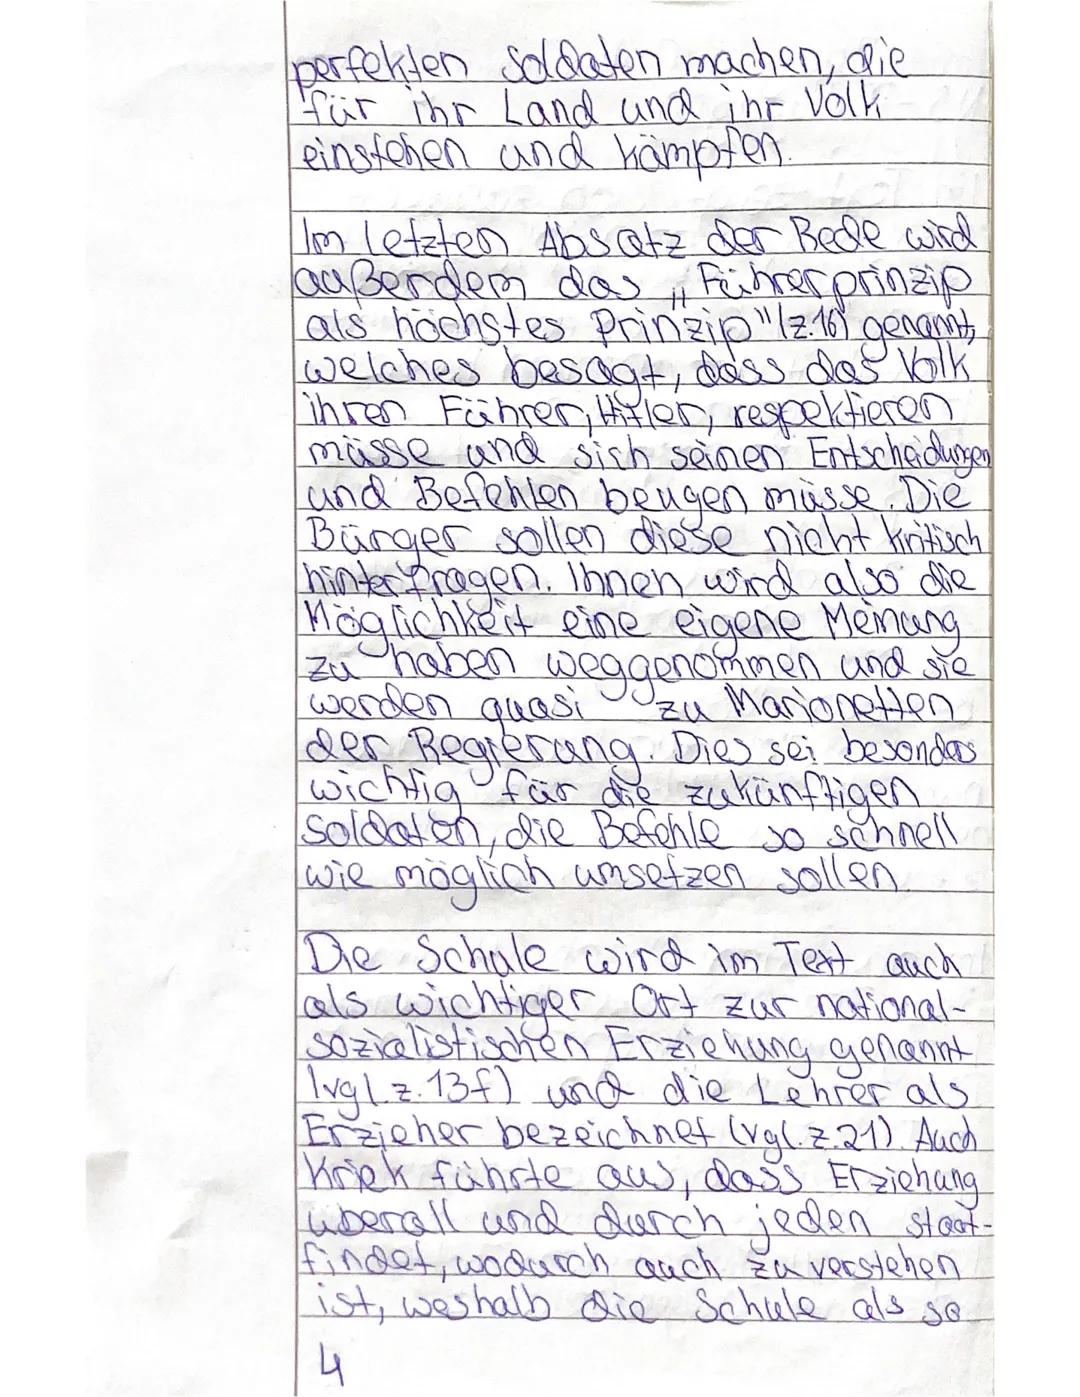 perfekten Soldaten machen, die
für ihr Land und ihr Volk
einstehen und kämpfen.
Im letzten Absatz der Rede wird
außerdem das „Führerprinzip
als höchstes Prinzip" (z.16) genannt,
welches besagt, dass das Volk
ihren Führer, Hitler, respektieren
müsse und sich seinen Entscheidungen
und Befehlen beugen müsse. Die
Bürger sollen diese nicht kritisch
hinterfragen. Ihnen wird also die
Möglichkeit eine eigene Meinung
zu haben weggenommen und sie
werden quasi zu Marionetten
der Regierung. Dies sei besonders
wichtig für die zukünftigen
Soldaten, die Befehle so schnell
wie möglich umsetzen sollen.
Die Schule wird im Text auch
als wichtiger Ort zur national-
sozialistischen Erziehung genannt
(vgl. z. 13f) und die Lehrer als
Erzieher bezeichnet (vgl. z.21). Auch
Kriek führte aus, dass Erziehung
überall und durch jeden staat-
findet, wodurch auch zu verstehen
ist, weshalb die Schule als so
4